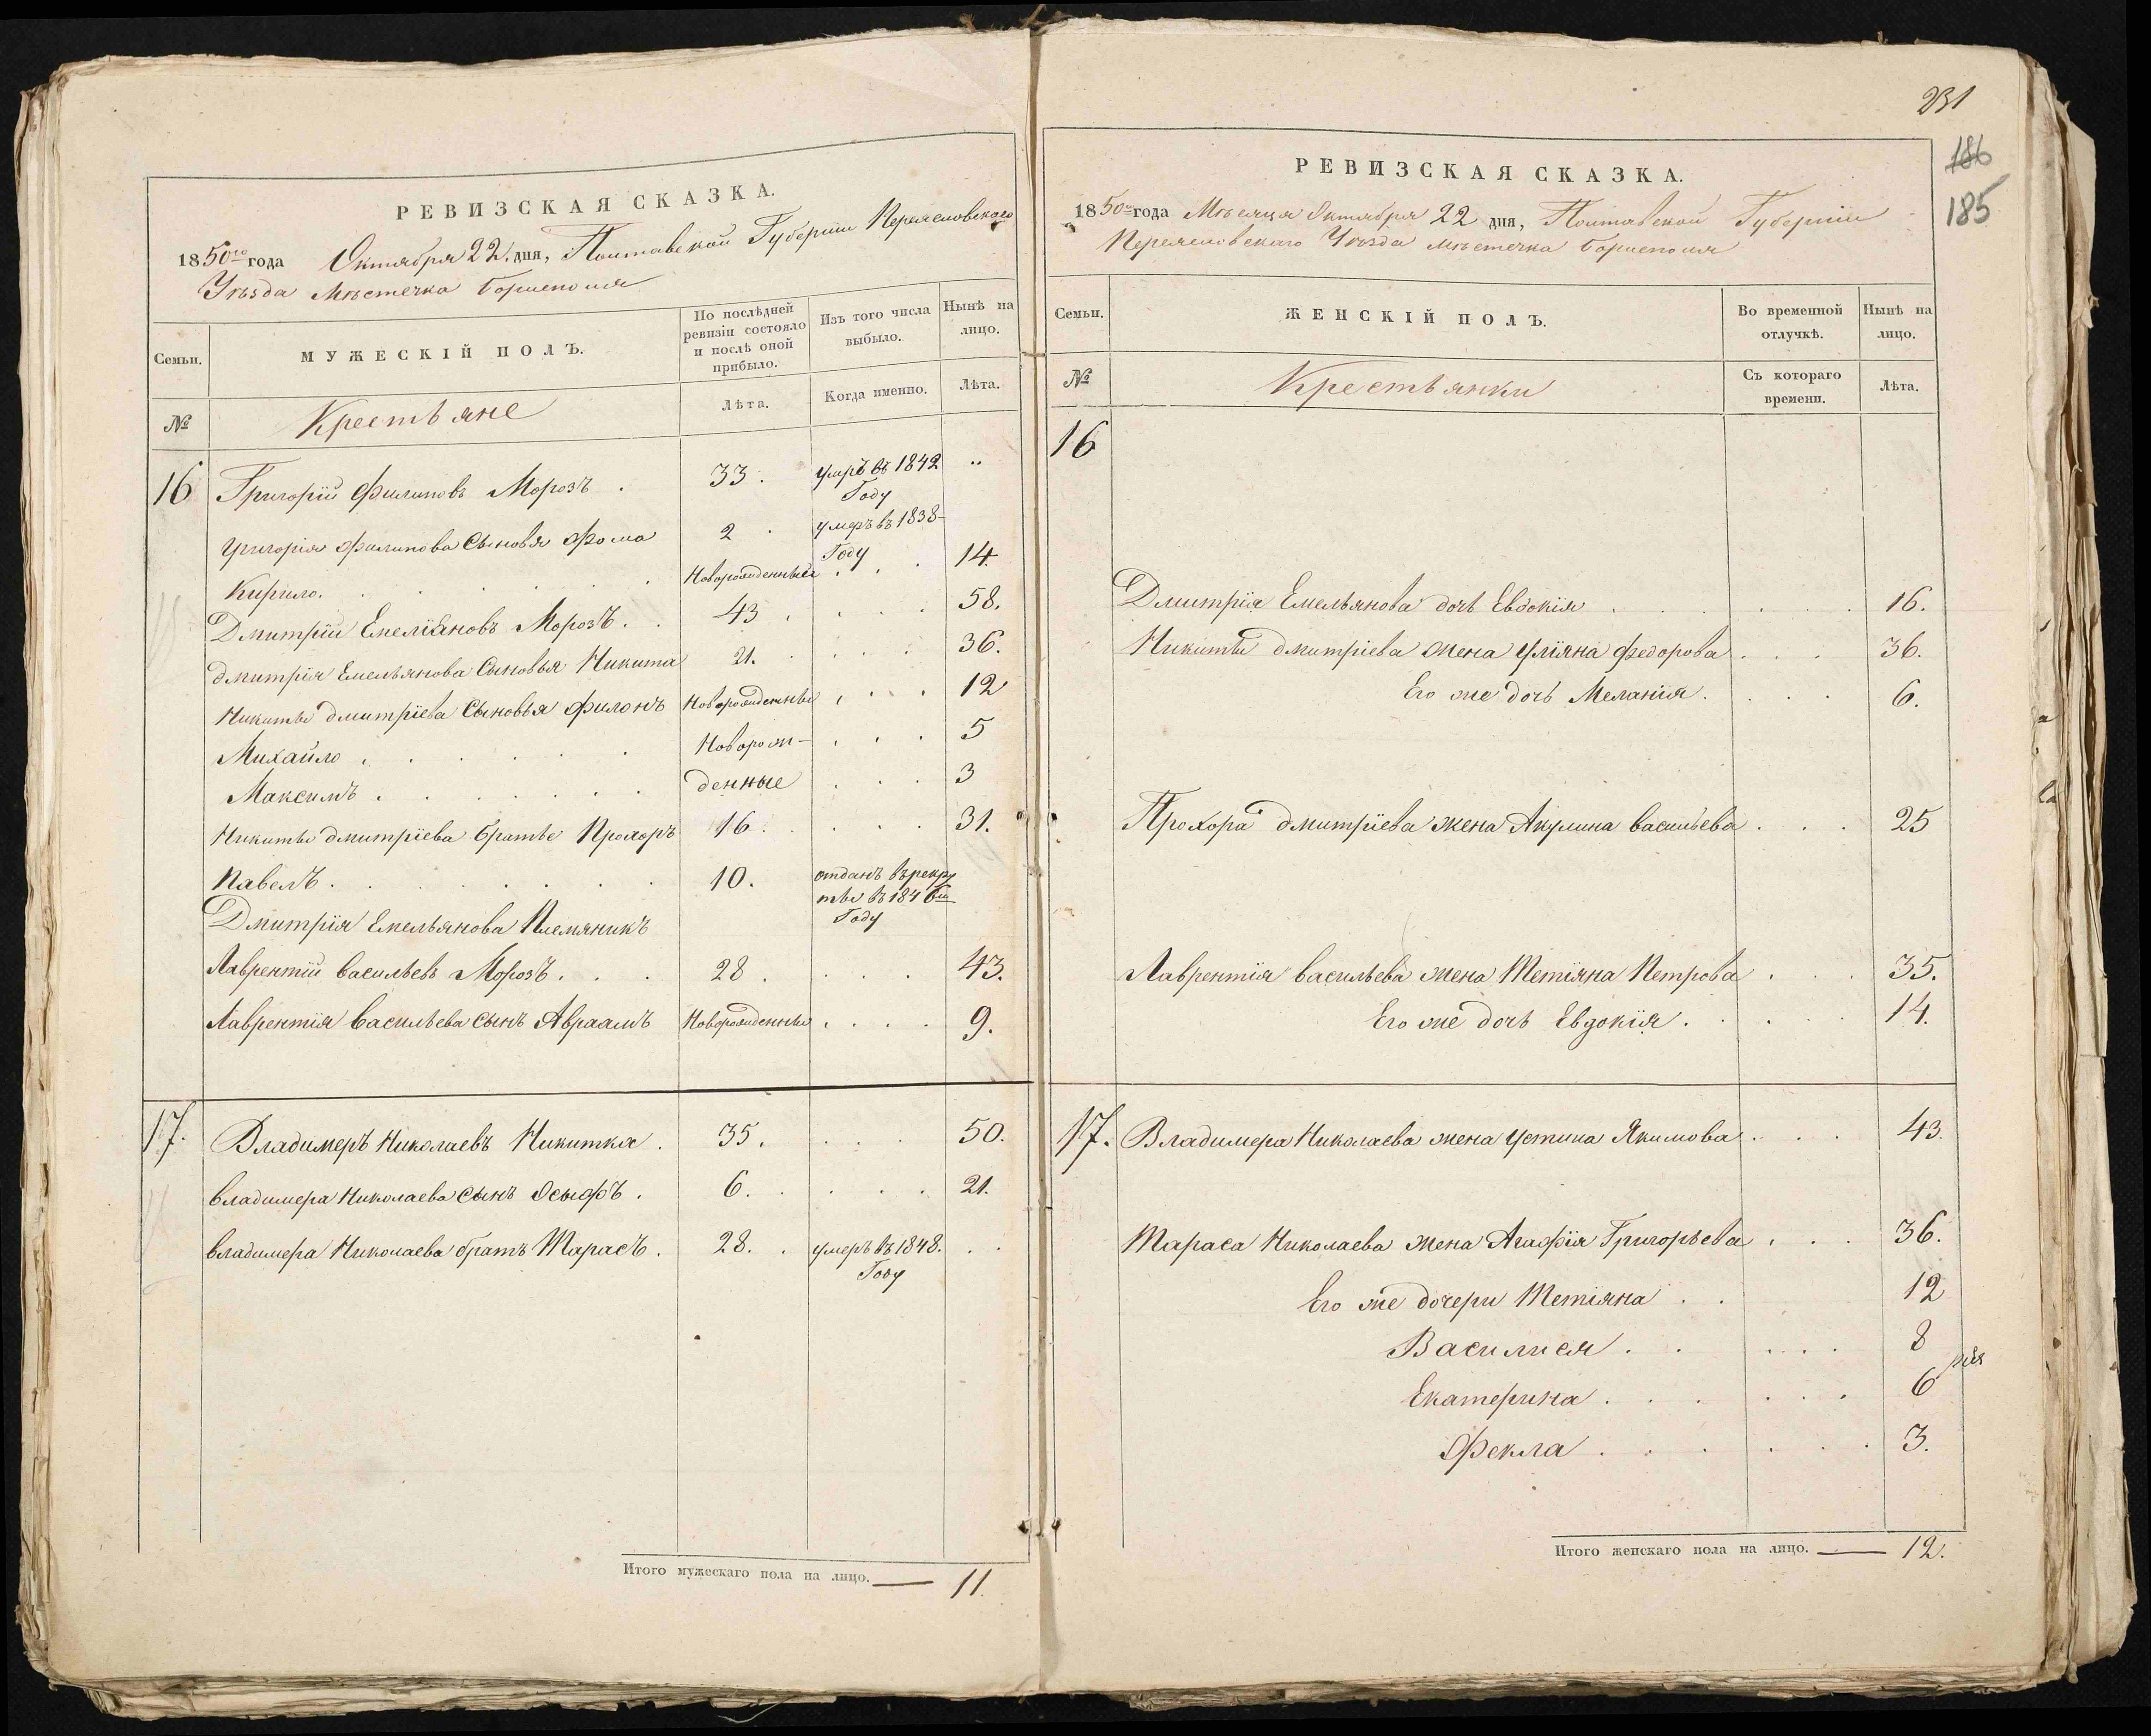 РЕВИЗСКАЯ СКАЗКА.
1850го года Октября 22 дня, Полтавской Губернии Переясловского
Уѣзда Мѣстечка Борисполя
Семьи.
МУЖЕСКІЙ ПОЛЪ.
По послѣдней ревизіи состояло и послѣ оной прибыло.
Изъ того числа выбыло.
Нынѣ на лицо.
№
Крестьяне
Лѣта.
Когда именно.
Лѣта.
16 Григорій Филиповъ Морозъ . 33. умръ въ 1842 Году "
Григорія Филипова Сыновья Фома 2 . умеръ въ 1838 Году
Кирило. Новорожденные . . . 14.
Дмитрій Емеліяновъ Морозъ. . 43 . . . . 58.
Дмитрія Емельянова Сыновья Никита 21. . . . . 36.
Никиты Дмитріева Сыновья Филонъ Новорожденные . . . 12
Михайло . . . . . . Новорож- . . . 5
Максимъ . . . . . . денные . . . 3
Никиты Дмитріева братье Прохоръ 16. . . . . 31.
Павелъ. . . . . . . 10. отданъ въ рекру
ты въ 1846м
Году
Дмитрія Емельянова Племяникъ
Лаврентій Васильевъ Морозъ. . . 28 . . . . 43.
Лаврентія Васильева сынъ Авраамъ Новорожденные . . . . 9.
17. Владимеръ Николаевъ Никитка . 35. . . . 50.
Владимера Николаева сынъ Осыфъ . 6. . . . . 21.
Владимера Николаева братъ Тарасъ . 28. . умеръ въ 1848. Году . .
Итого мужескаго пола на лицо. — 11.
231
186
185
РЕВИЗСКАЯ СКАЗКА.
1850го года Мѣсяца Октября 22 дня, Полтавской Губерніи
Переясловскаго Уѣзда мѣстечка Борисполя
Семьи.
ЖЕНСКІЙ ПОЛЪ.
Во временной отлучкѣ.
Нынѣ на лицо.
№
Крестьянки
Съ котораго времени.
Лѣта.
16
Дмитрія Емельянова дочь Евдокія . . . . . . 16.
Никиты Дмитріева жена Уліяна Федорова . . . 36.
Его же дочь Меланія. . . . 6.
Прохора Дмитріева жена Акулина Васильева . . . 25
Лаврентія Васильева жена Тетіяна Петрова . . . 35.
Его же дочь Евдокія . . . . . 14.
17. Владимера Николаева жена Устина Якимова . . . 43.
Тараса Николаева жена Агафія Григорьева . . . 36.
Его же дочери Тетіяна . . 12
Василися . . . . . 8
Екатерина . . . . . . 6
Фекла . . . . . . 3.
Итого женскаго пола на лицо. — 12.